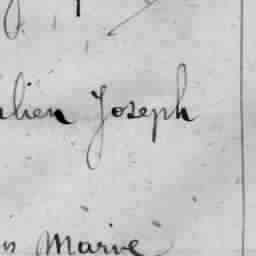 lien Joseph
Marie